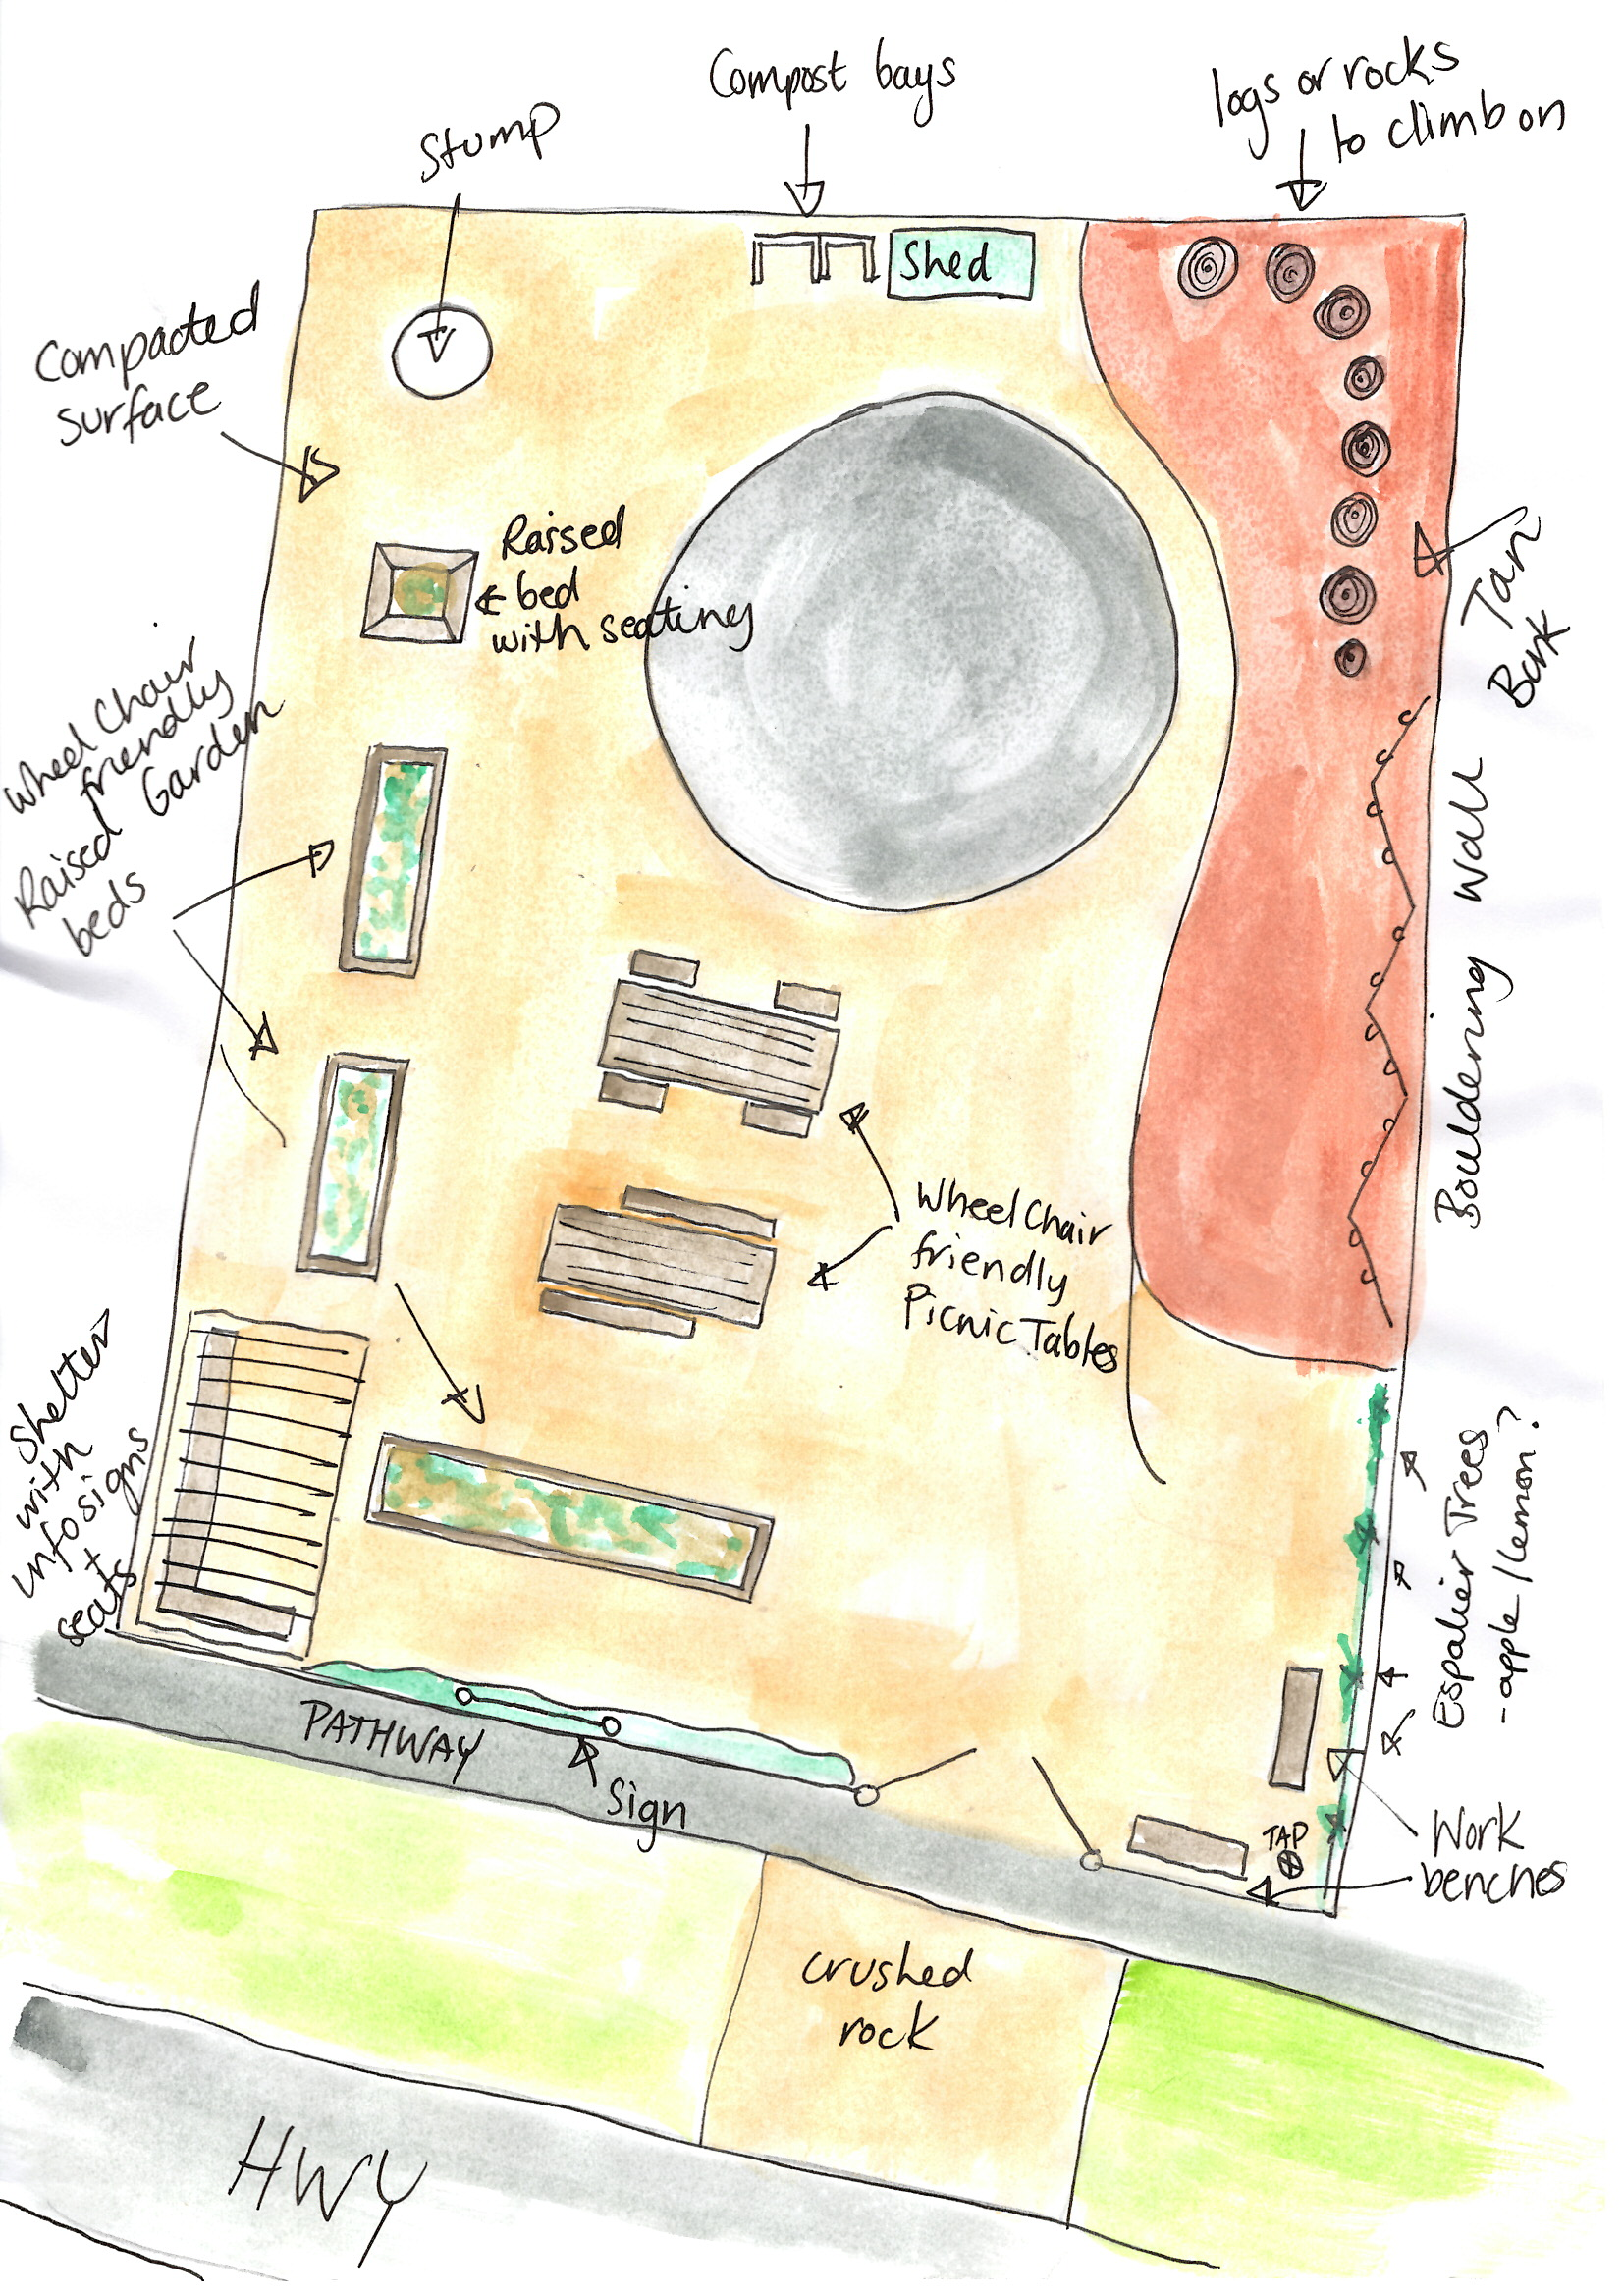 Compost bays
logs or rocks
to climb on
Stump
Shed
Compacted
surface
Raised
bed
with seating
Tan
Bark
Wheel Chair
friendly
Raised Garden
beds
Bouldering Wall
Wheel Chair
friendly
Picnic Tables
Shelter
with
infosigns
+
seats
Espalier Trees
- apple / lemon?
PATHWAY
Sign
TAP
Work
benches
crushed
rock
HWY